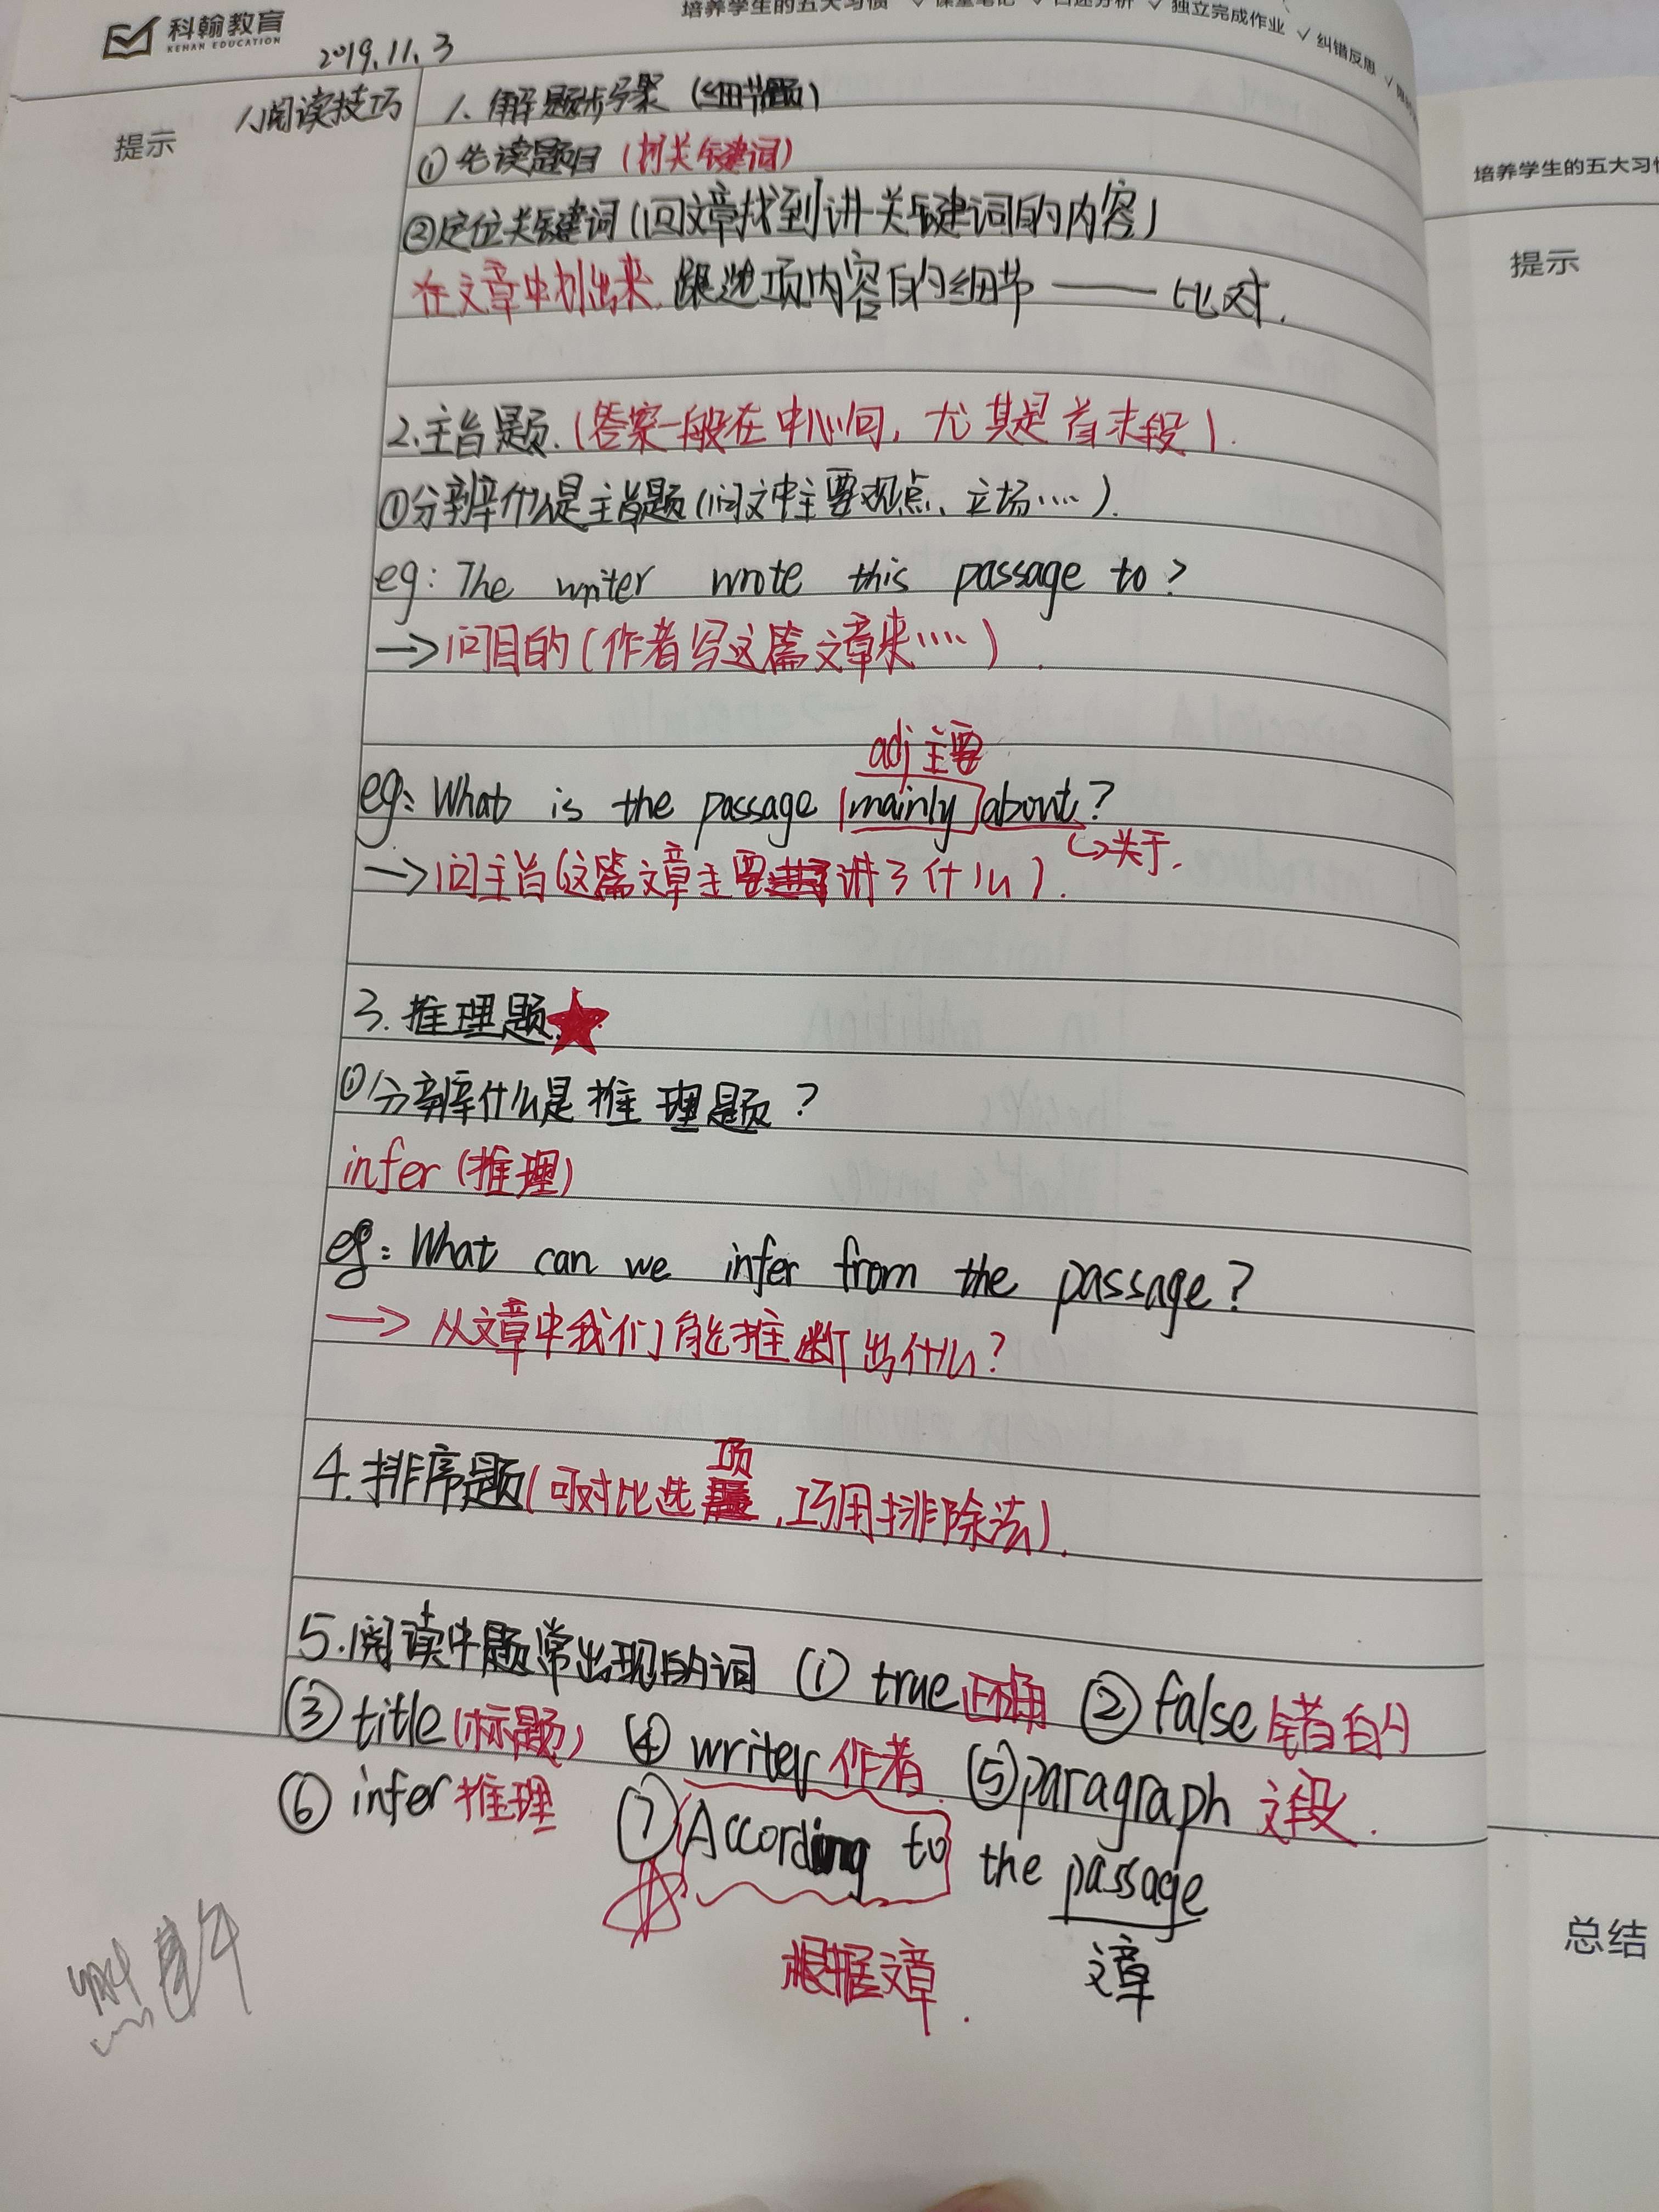 科翰教育
KEHAN EDUCATION
培养学生的五大习惯 ✓ 课堂笔记 ✓ 口述分析 ✓ 独立完成作业 ✓ 纠错反思 ✓
2019.11.3
提示
阅读技巧
1. 解题步骤 (细节题)
① 先读题目 (抓关键词)
②定位关键词 (回文章找到讲关键词的内容)
在文章中划出来. 跟选项内容的细节 —— 比对.
2.主旨题. (答案一般在中心句, 尤其是首末段).
①分辨什么是主旨题 (问文中主要观点、立场....).
eg: The writer wrote this passage to?
→ 问目的 (作者写这篇文章来....).
adj 主要
eg: What is the passage mainly about?
↪关于.
→ 问主旨 (这篇文章主要讲了什么).
3. 推理题 ★
①分辨什么是推理题?
infer (推理)
eg: What can we infer from the passage?
→ 从文章中我们能推断出什么?
项
4. 排序题 (可对比选, 巧用排除法).
5. 阅读中题常出现的词 ① true 正确 ② false 错的
③ title (标题) ④ writer 作者 ⑤ paragraph 文段.
⑥ infer 推理 ⑦ According to the passage
根据文章. 文章
培养学生的五大习惯
提示
总结